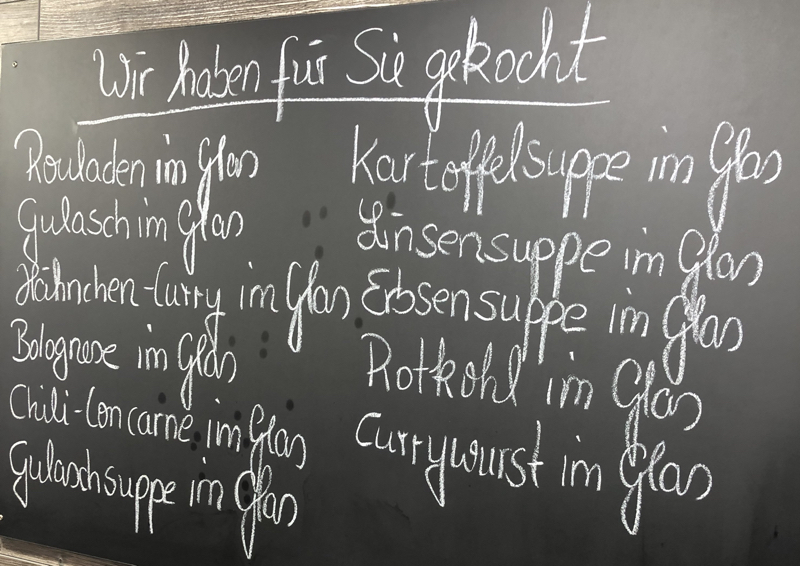 Wir haben für Sie gekocht
Rouladen im Glas
Gulasch im Glas
Hähnchen-Curry im Glas
Bolognese im Glas
Chili-Con carne im Glas
Gulaschsuppe im Glas
Kartoffelsuppe im Glas
Linsensuppe im Glas
Erbsensuppe im Glas
Rotkohl im Glas
Currywurst im Glas